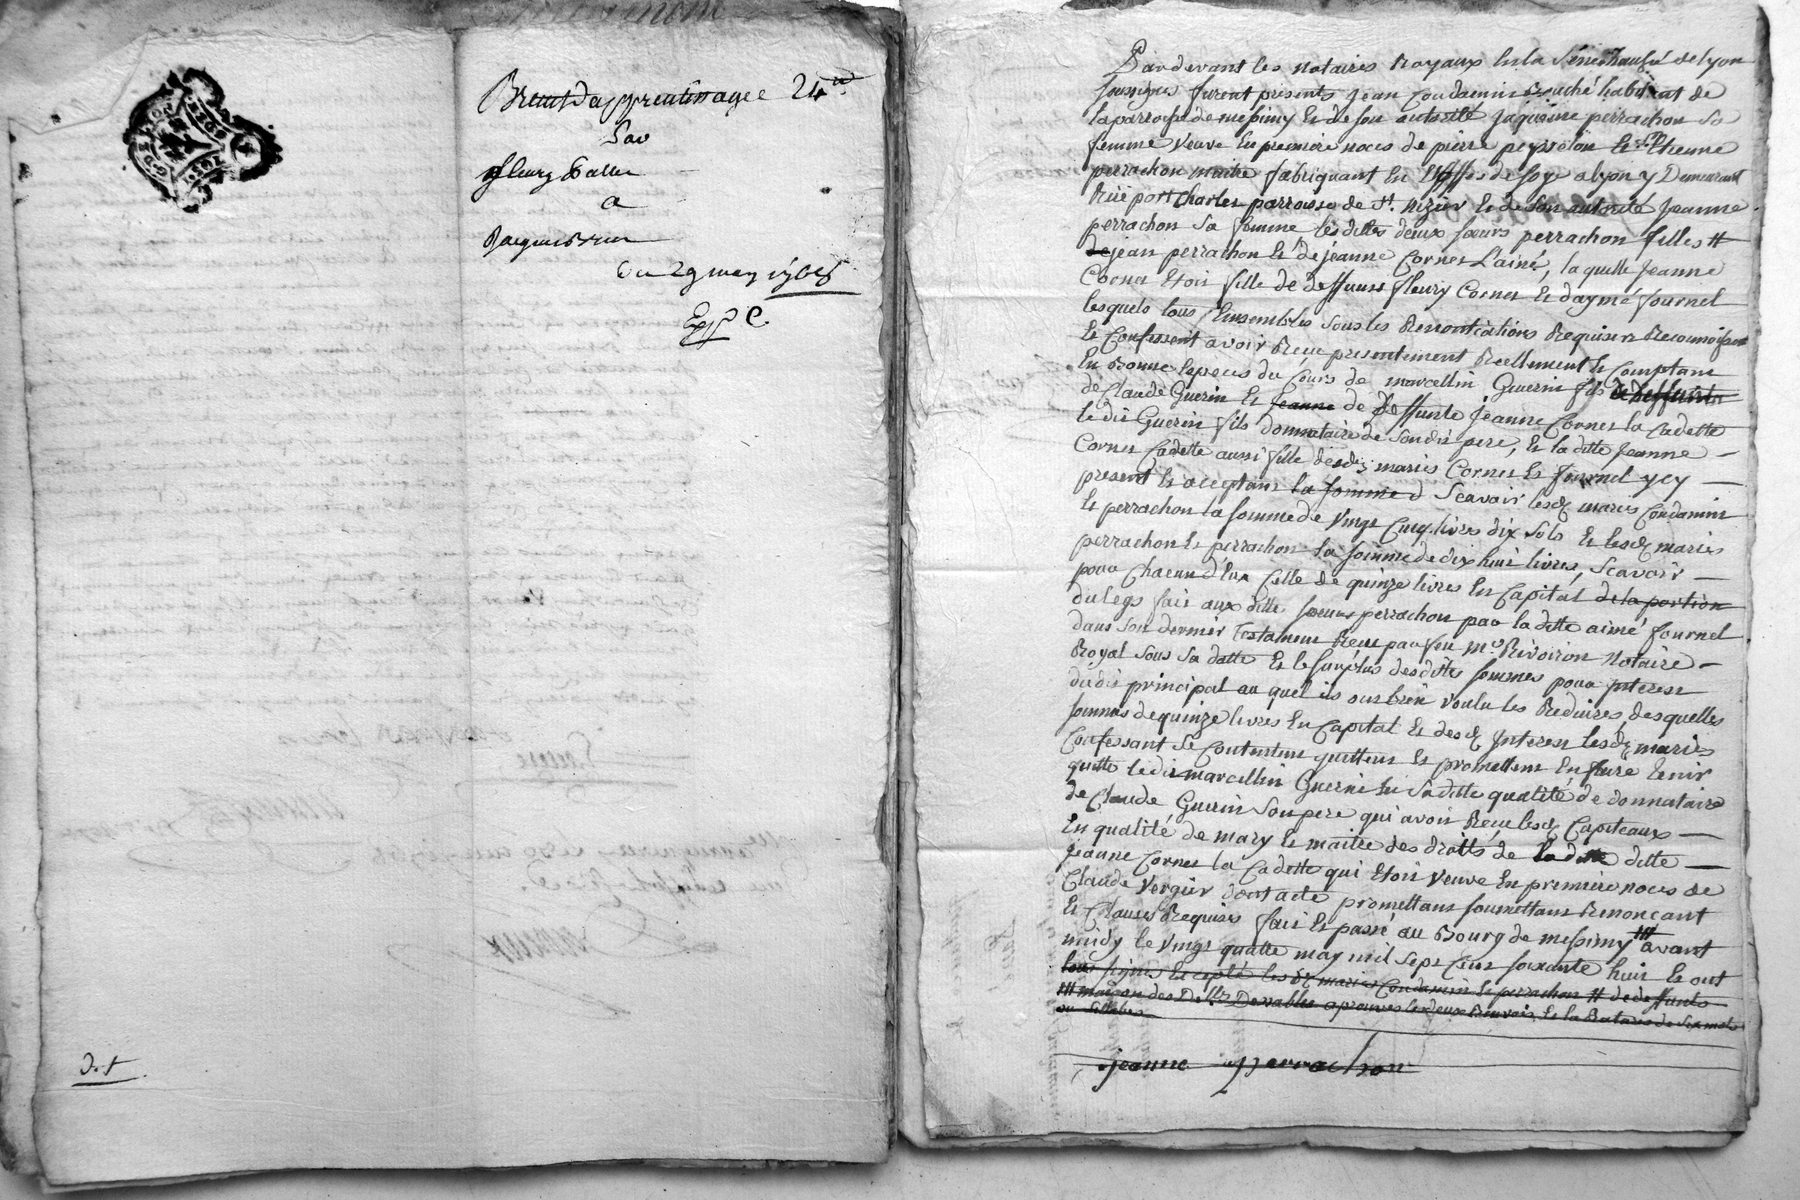 Brevet d'apprentissage 24
Par
fleury
a
Jacques
du 29 may 1768
Exp. C.
d. f
Pardevant les notaires Royaux en la Sénéchaussé de lyon
soussignés furent presents Jean Condamin habitant de
la parroisse de messimy et de son autorité Jaqueme perrachon sa
femme veuve en premiere noces de pierre et Etienne
perrachon maitre fabriquant en Etoffes de soye a lyon y Demeurant
Rüe port Charles parroisse de St. Nizier et de son autorité Jeanne
perrachon sa femme les dittes deux soeurs perrachon filles #
de jean perrachon et de jeanne Cornet L'ainé, la quelle Jeanne
Cornet Etoit fille de deffunts fleury Cornet et daymé fournel
lesquels tous Ensembles sous les Renontiations Requises Reconnoissent
et Confessent avoir Reçu presentement Reellement et Comptant
En Bonne Especes du Cours de marcellin Guerin fils de deffunts
de Claude Guerin et Jeanne de Deffunte Jeanne Cornet la Cadette
le dit Guerin fils donnataire de son dit pere, et la ditte Jeanne
Cornet Cadette aussi fille desd. mariés Cornet et fournel ycy
present et aceptant la somme d Scavoir lesd. mariés Condamin
et perrachon la somme de vingt Cinq livres dix sols et lesd. mariés
perrachon et perrachon la somme de dix huit livres, Scavoir
pour Chacun d'Eux Celle de quinze livres En Capital de la portion
du legs fait aux ditte soeurs perrachon par la ditte aimé fournel
dans son dernier testament Reçu par feu Me. Rivoiron Notaire
Royal sous sa datte et le surplus desdites sommes pour Interest
dudit principal au quel ils ont bien voulu les Reduires, desquelles
sommes de quinze livres En Capital et desd. Interest lesd. mariés
Confessant se Contentent quittent et promettent En faire tenir
quitte ledit marcellin Guerin En sa ditte qualité de donnataire
de Claude Guerin son pere qui avoit Reçu lesd. Capiteaux
En qualité de mary et maitre des droits de la ditte ditte
Jeanne Cornet la Cadette qui Etoit veuve En premiere noces de
Claude Vergier dont acte promettant soumettant Renoncant
et Clauses Requises fait et passé au Bourg de messimy ## avant
midy le vingt quatre may mil sept Cent soixante huit et ont
tous signés Excepté les d. mariés Condamin et perrachon # de deffunts
## maison des approuvés les deux Renvois et la Rature de six mots
ou sillabes
jeanne perrachon